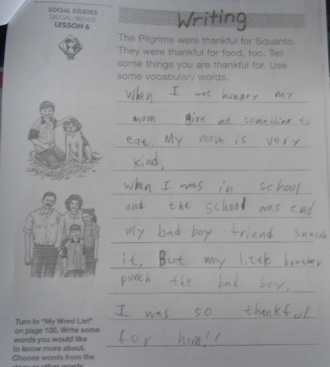 SOCIAL STUDIES
SPECIAL FRIENDS
LESSON 6
Writing
The Pilgrims were thankful for Squanto.
They were thankful for food, too. Tell
some things you are thankful for. Use
some vocabulary words.
When I was hungry my
mom give me something to
eat. My mom is very
kind.
when I was in school
and the school was end
my bad boy friend
it. But my little brother
punch the bad boy.
I was so thankful
for him!!
Turn to "My Word List"
on page 100. Write some
words you would like
to know more about.
Choose words from the